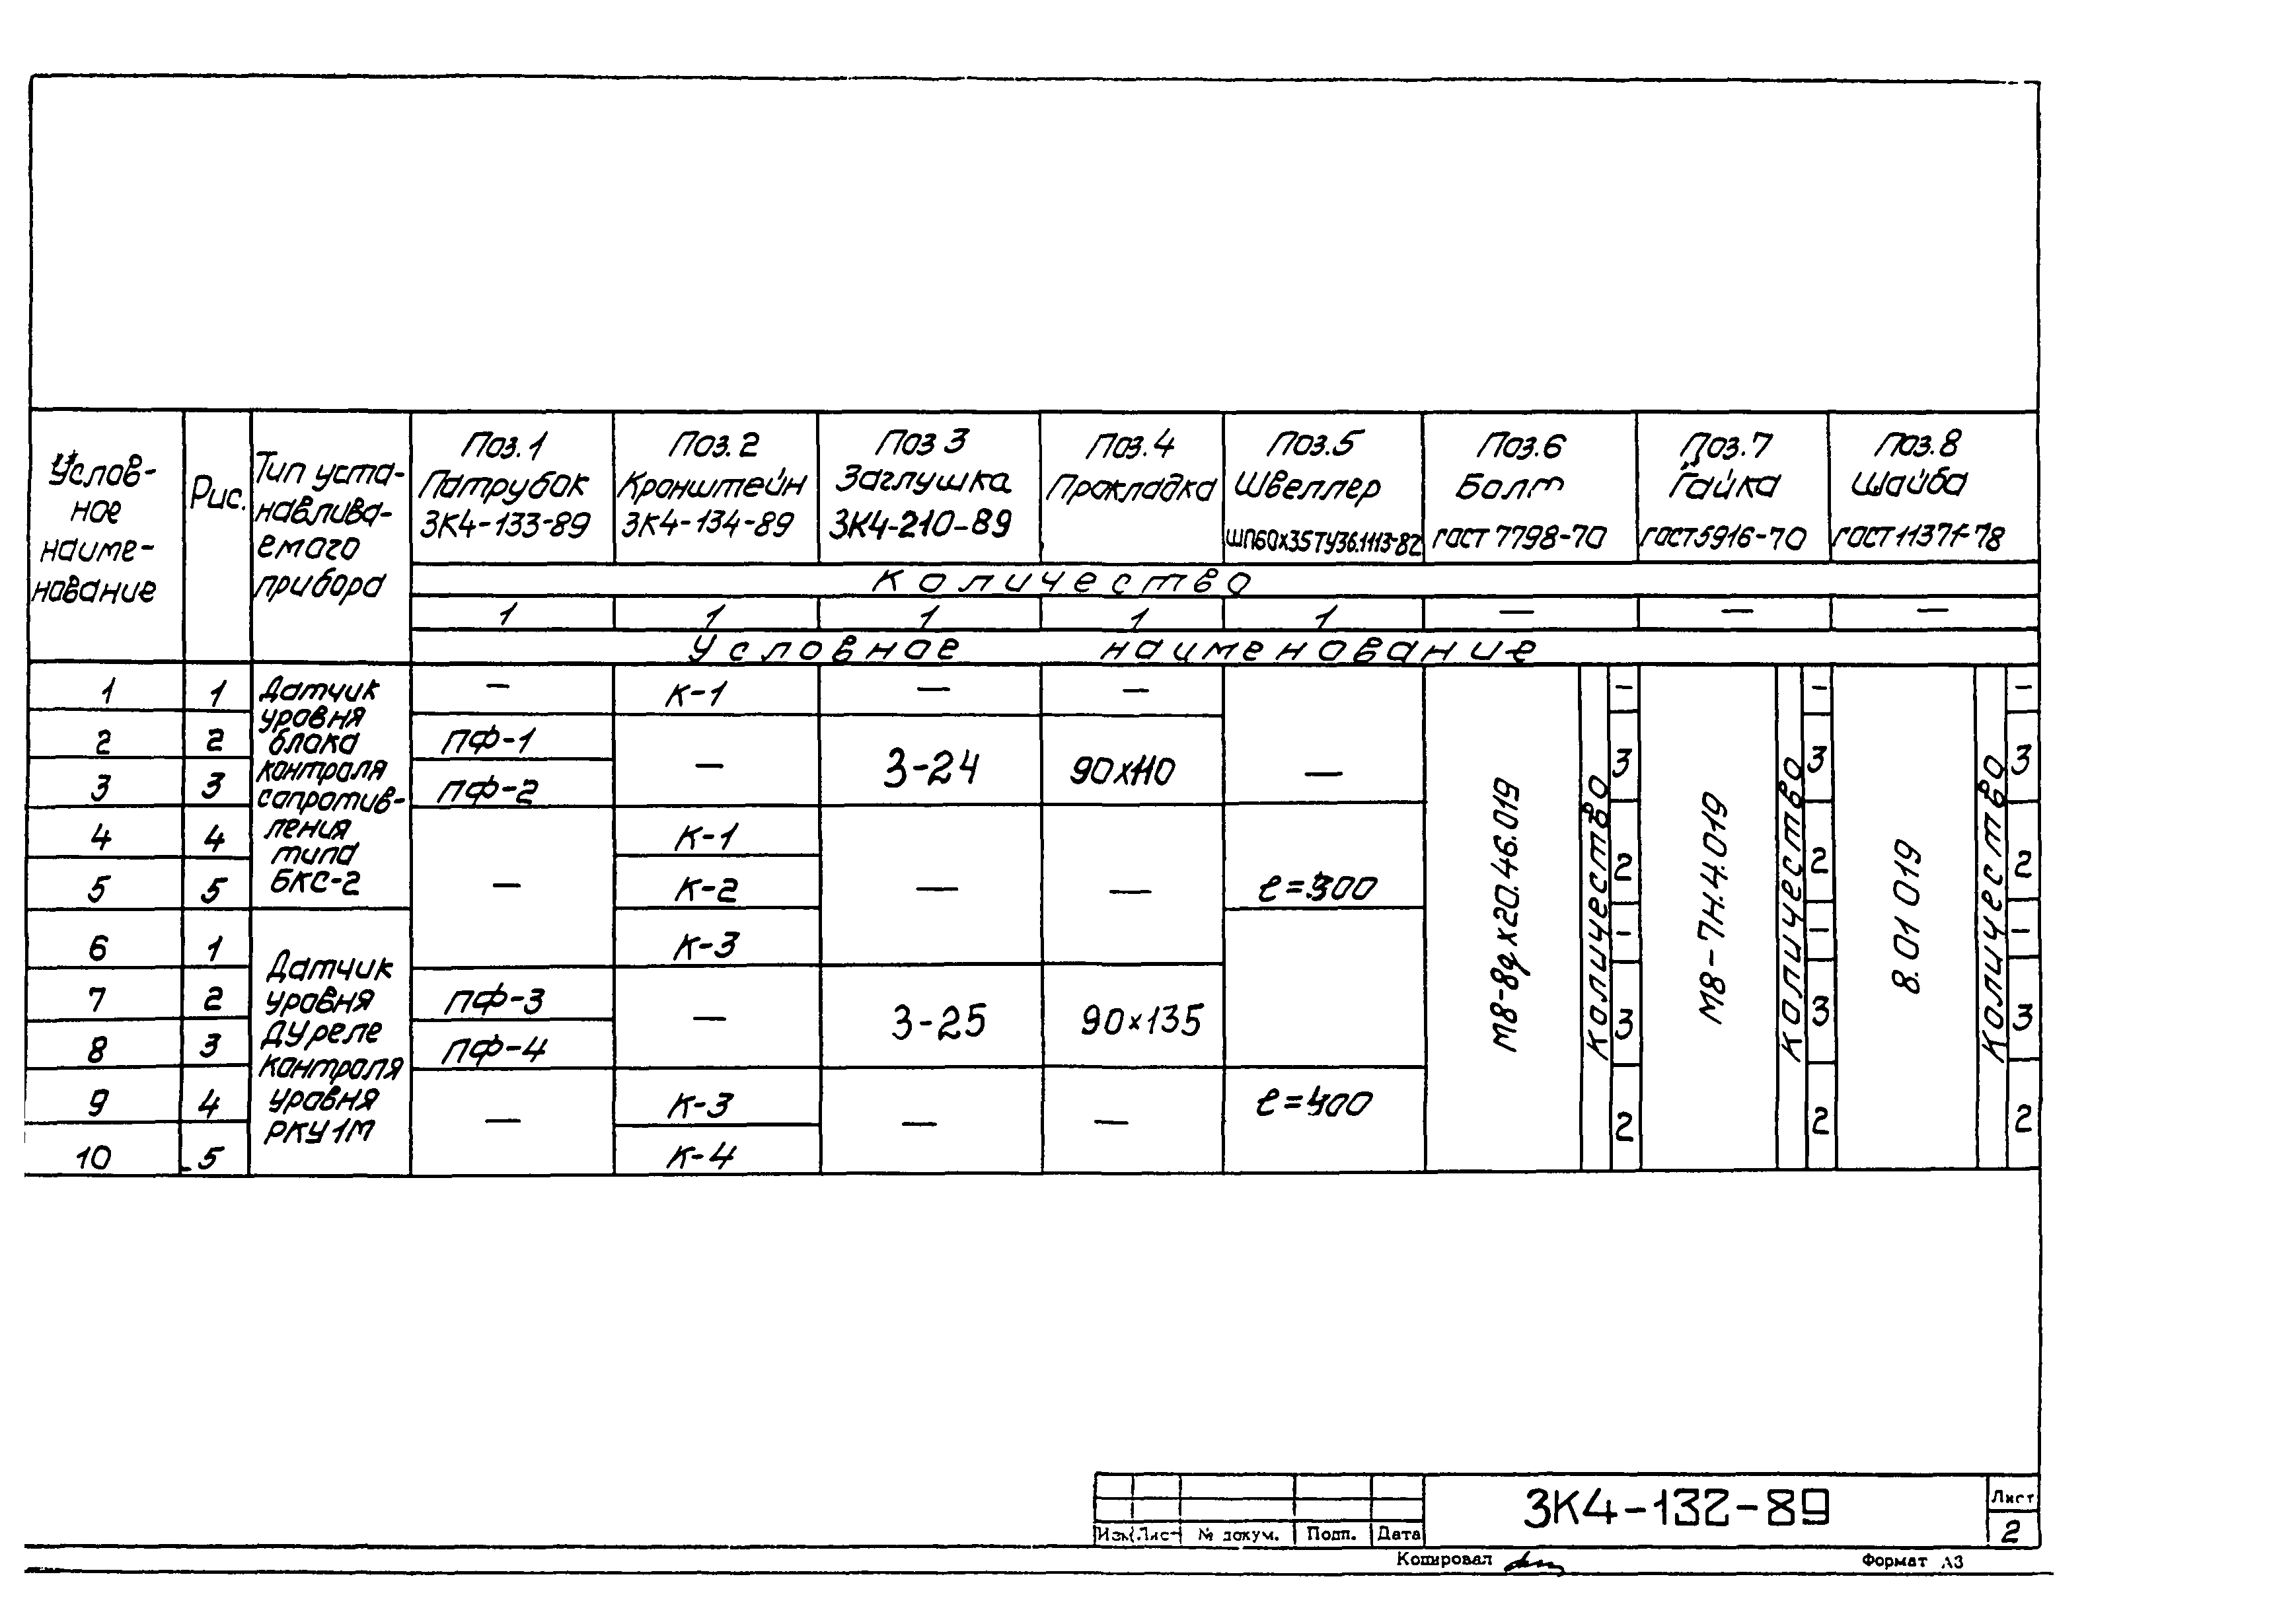 Услов-
ное
наиме-
нование
Рис.
Тип уста-
навлива-
емого
прибора
Поз.1
Патрубок
ЗК4-133-89
Поз.2
Кронштейн
ЗК4-134-89
Поз 3
Заглушка
ЗК4-210-89
Поз.4
Прокладка
Поз.5
Швеллер
ШП60х35ТУ36.1113-82
Поз.6
Болт
ГОСТ 7798-70
Поз.7
Гайка
ГОСТ5916-70
Поз.8
Шайба
ГОСТ11371-78
Количество
1 1 1 1 1 — — —
Условное наименование
1 1 — К-1 — — — — —
Датчик
уровня
блока
контроля
сопротив-
ления
типа
БКС-2
2 2 ПФ-1
— 3-24 90х110 — 3 3 3
3 3 ПФ-2
4 4 К-1
— — — ℓ=300 2 2 2
5 5 К-2
6 1 К-3 — — —
Датчик
уровня
ДУ реле
контроля
уровня
РКУ1М
7 2 ПФ-3
— 3-25 90х135 3 3 3
8 3 ПФ-4
9 4 К-3
— — — ℓ=400 2 2 2
10 5 К-4
М8-8gх20.46.019
Количество
М8-7Н.4.019
Количество
8.01 019
Количество
ЗК4-132-89
Лист
2
Изм Лист № докум. Подп. Дата
Копировал
Формат А3